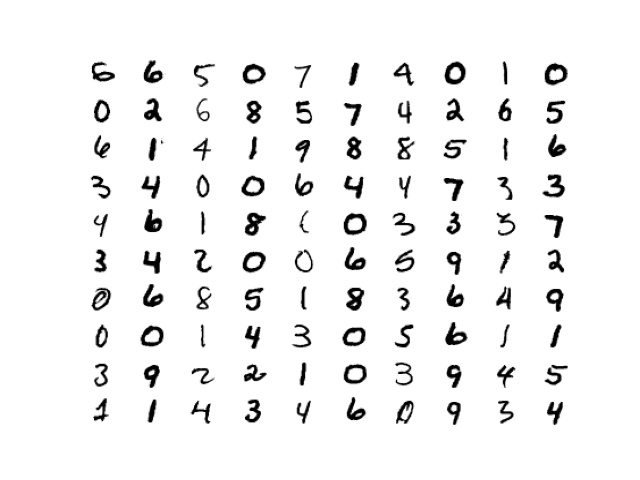 6 6 5 0 7 1 4 0 1 0
0 2 6 8 5 7 4 2 6 5
6 1 4 1 9 8 8 5 1 6
3 4 0 0 6 4 4 7 3 3
4 6 1 8 0 3 3 3 7
3 4 2 0 0 6 5 9 1 2
0 6 8 5 1 8 3 6 4 9
0 0 1 4 3 0 5 6 1 1
3 9 2 2 1 0 3 9 4 5
1 1 4 3 4 6 0 9 3 4